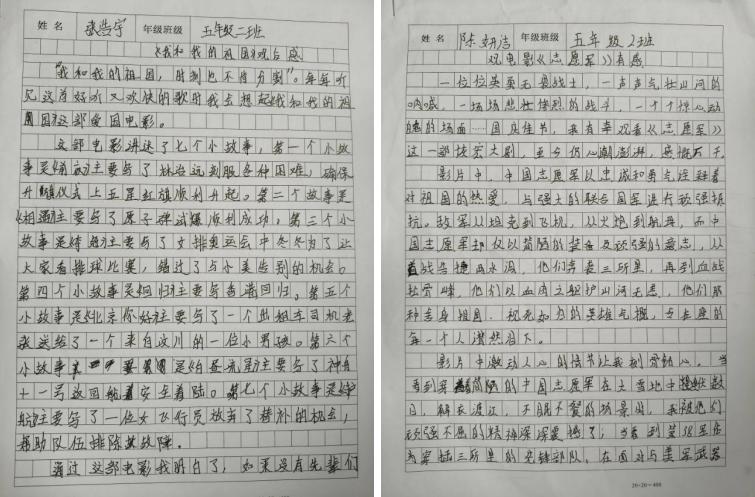 姓名 张浩宇 年级班级 五年级二班
《我和我的祖国》观后感
“我和我的祖国，时刻也不能分割”。每每听
见这首好听又欢快的歌时我会想起《我和我的祖
国》这部爱国电影。
这部电影讲述了七个小故事，第一个小故
事是《前夜》主要写了林治远到服各种困难，确保
升旗仪式上五星红旗顺利升起。第二个故事是
《相遇》主要写了原子弹试爆顺利成功，第三个小
故事是《夺冠》主要写了女排奥运会中冬冬为了让
大家看排球比赛，错过了与小美告别的机会。
第四个小故事是《回归》主要写香港回归。第五个
小故事是《北京你好》主要写了一个出租车司机
送给了一个来自汶川的一位小男孩。第六个
小故事是《白昼流星》主要写了神舟
十一号返回舱着安全着陆。第七个小故事是《护
航》主要写了一位女飞行员放弃了替补的机会，
帮助队伍排除故障。
通过这部电影我明白了，如果没有先辈们
姓名 陈妍洁 年级班级 五年级2班
观电影《志愿军》有感
一位位英勇无畏战士，一声声气壮山河的
呐喊，一场场悲壮惨烈的战斗，一个个惊心动
魄的场面……国庆佳节，我有幸观看《志愿军》
这一部恢宏大剧，至今仍心潮澎湃，感慨万千。
影片中，中国志愿军以忠诚和勇气诠释着
对祖国的热爱，与强大的联合国军进行顽强抵
抗。敌军从坦克到飞机，从火炮到航母，而中
国志愿军却仅以简陋的装备及顽强的意志，从
着战各地再水浸，他们奔袭三所里，再到血战
松骨峰，他们以血肉之躯护山河无恙，他们那
种舍身祖国、视死如归的英雄气概，与在座的
每一个人潸然泪下。
影片中激动人心的情节让我刻骨铭心。当
看到穿着简陋的中国志愿军在大雪地中数
日，解衣渡江，手脚不暂的场景时，我被他们
顽强不屈的精神深深震撼了；当看到第38军作
为穿插三所里的先锋部队，在面对与美军武器
20×20=400